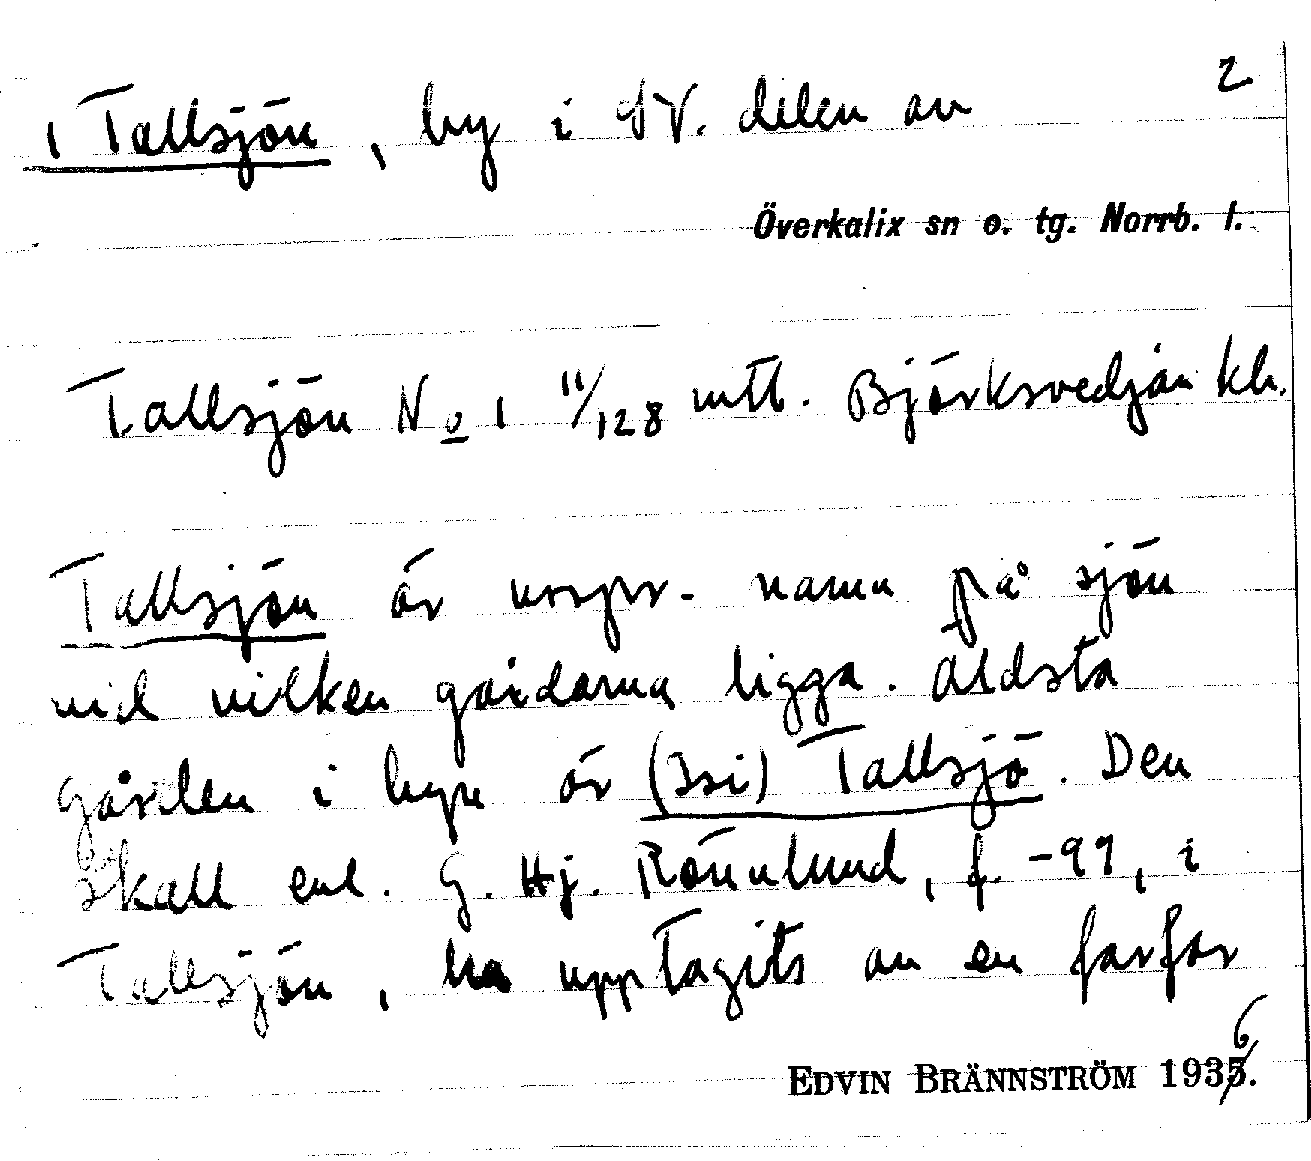 2
1 Tallsjön, by i SV. delen av
Överkalix sn o. tg. Norrb. l.
Tallsjön No 1 11/128 mtl. Björksvedjan kb.
Tallsjön är urspr. namn på sjön
vid vilken gårdarna ligga. Äldsta
gården i byn är (3si) Tallsjö. Den
skall enl. G. Hj. Rönnlund, f. -97, i
Tallsjön, ha upptagits av en farfar
EDVIN BRÄNNSTRÖM 1936.